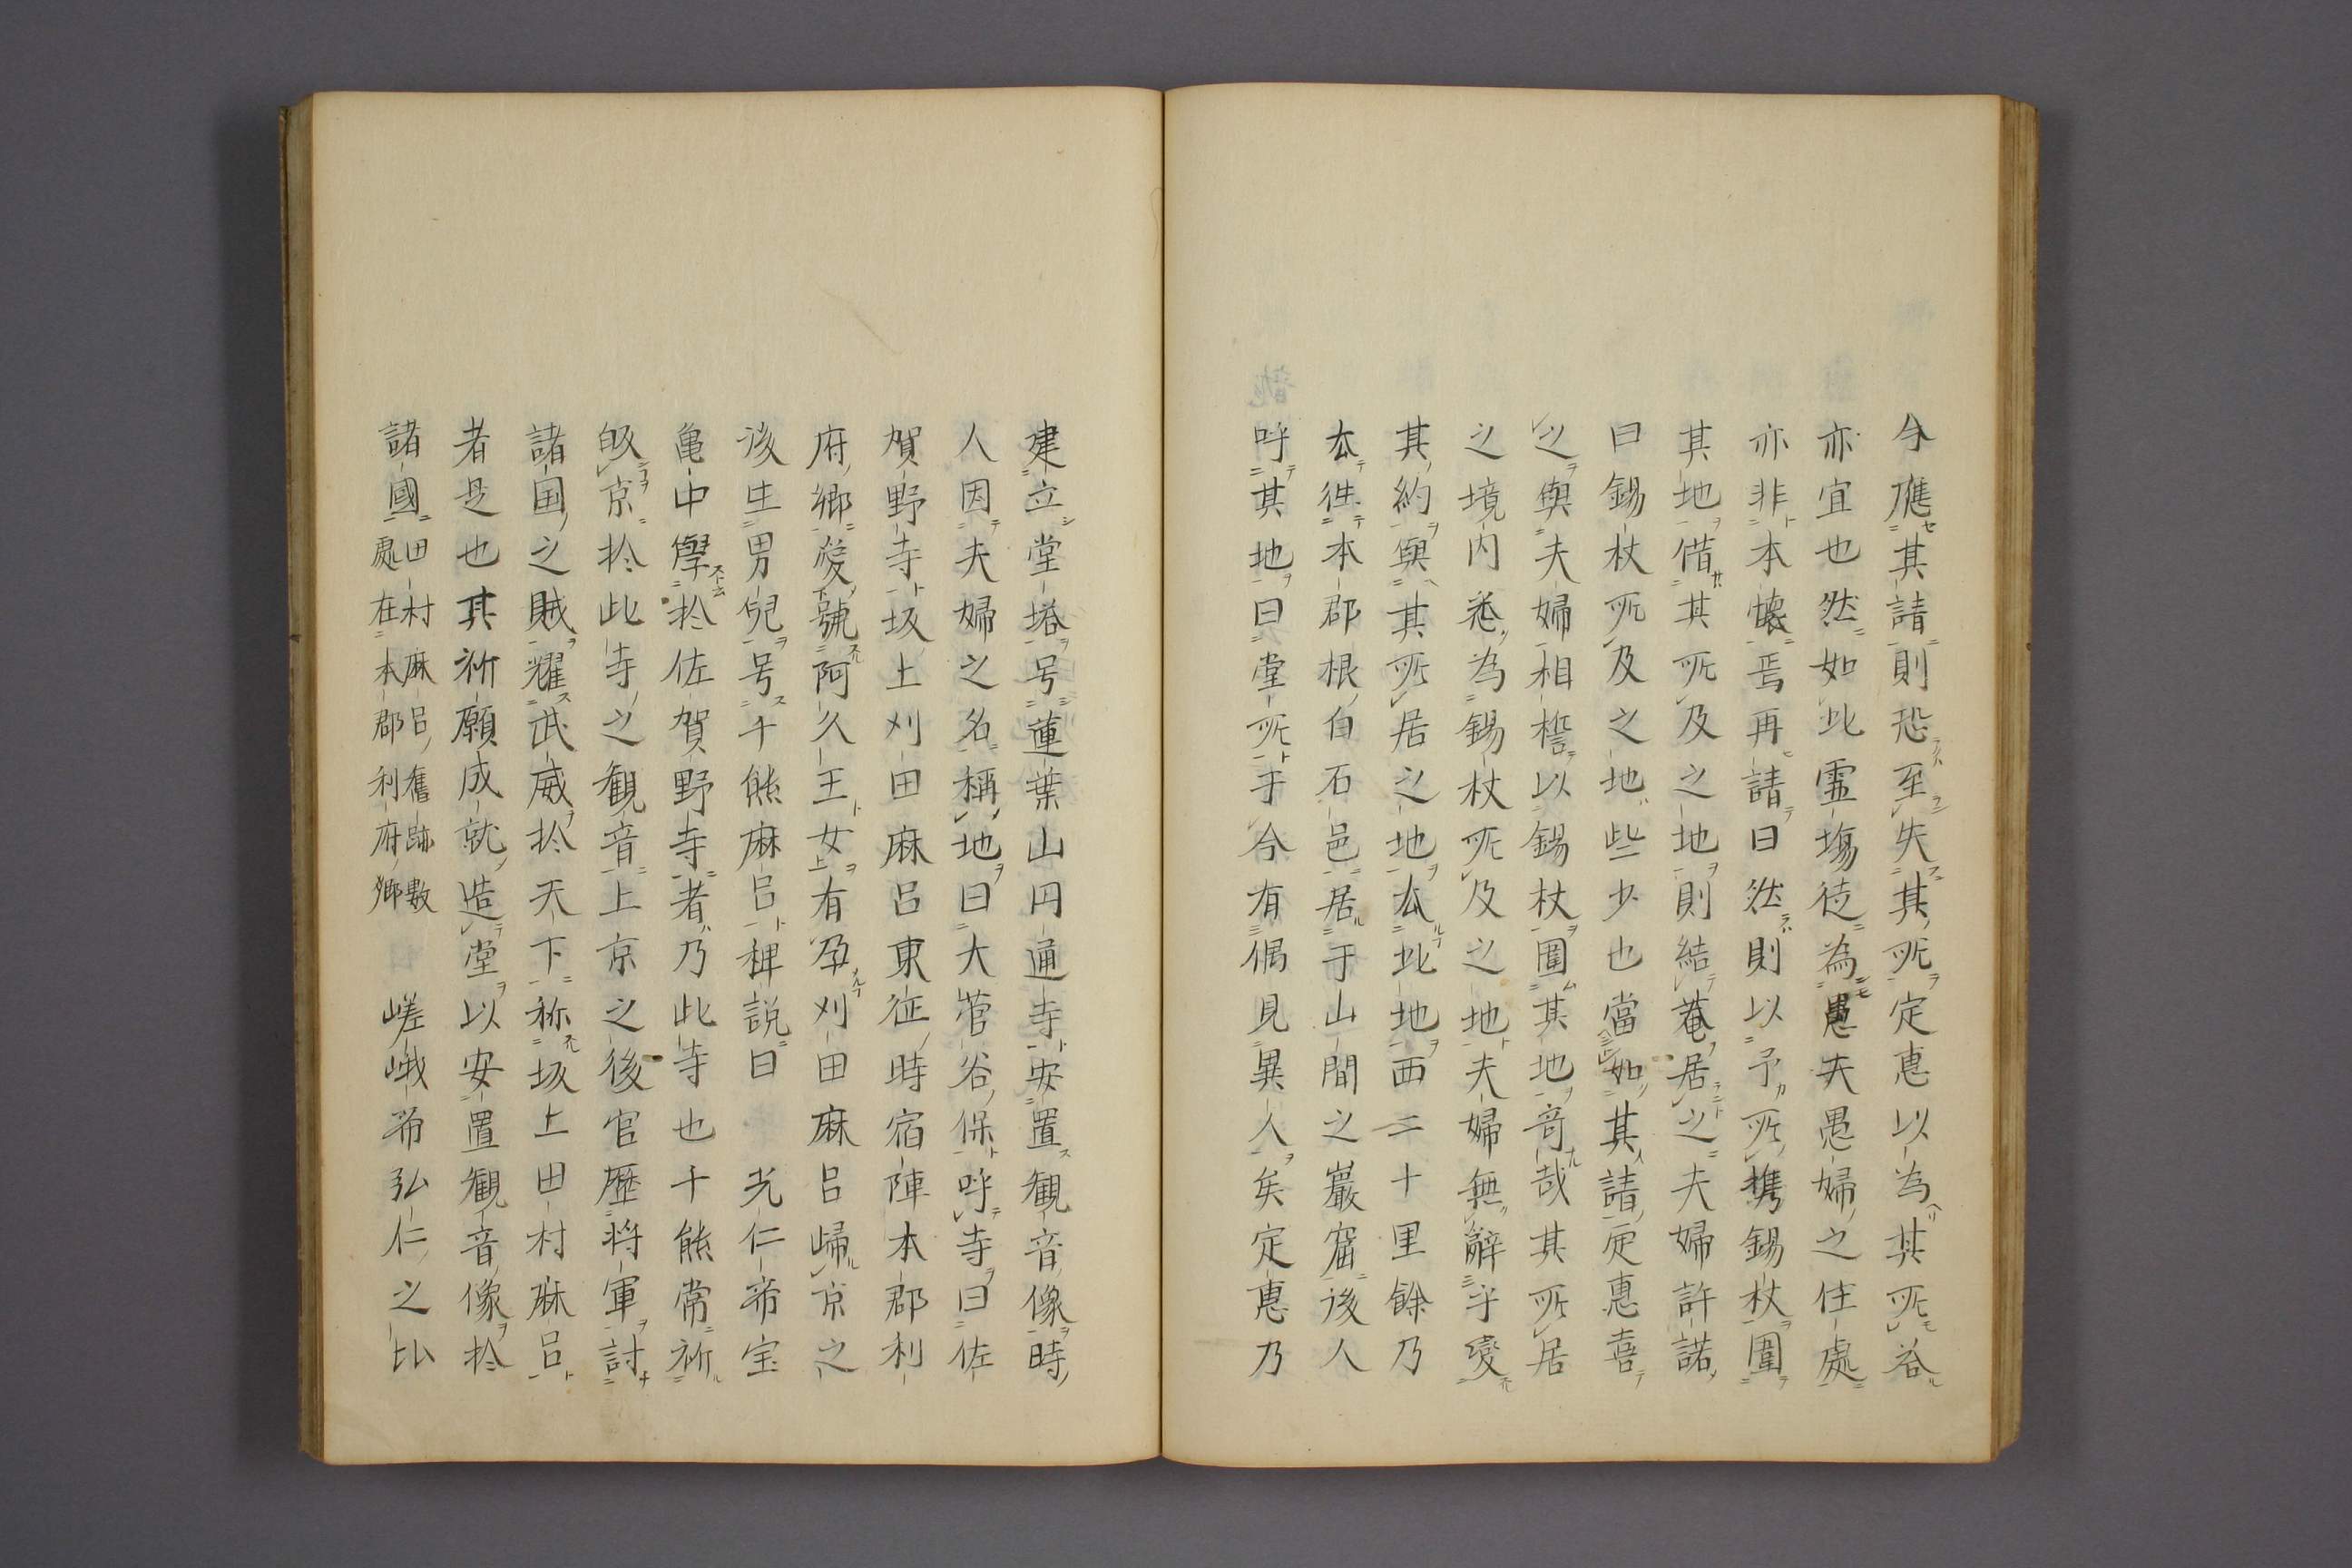 今應其請則恐至失其所定惠以為其所谷
亦宜也然如此霊場徒為愚夫愚婦之住處
亦非本懐焉再請曰然則以予所携錫杖圍
其地借其所及之地則結菴居之夫婦許諾
曰錫杖所及之地些少也當如其請定惠喜
之與夫婦相誓以錫杖圍其地奇哉其所居
之境内悉為錫杖所及之地夫婦無辭乎変
其約與其所居之地厺此地西二十里餘乃
厺徃本郡根白石邑居于山間之巖窟後人
呼其地曰堂所于今有偶見異人矣定惠乃
建立堂塔号蓮葉山円通寺安置観音像時
人因夫婦之名稱地曰大菅谷保呼寺曰佐
賀野寺坂上刈田麻呂東征時宿陣本郡利
府郷愛號阿久王女有孕刈田麻呂帰京之
後生男兒号千熊麻呂稗説曰　光仁帝宝
亀中學於佐賀野寺者乃此寺也千熊常祈
皈京於此寺之観音上京之後官歴将軍討
諸国之賊耀武威於天下称坂上田村麻呂
者是也其祈願成就造堂以安置観音像於
諸國田村麻呂舊跡數處在本郡利府郷　嵯峨帝弘仁之比